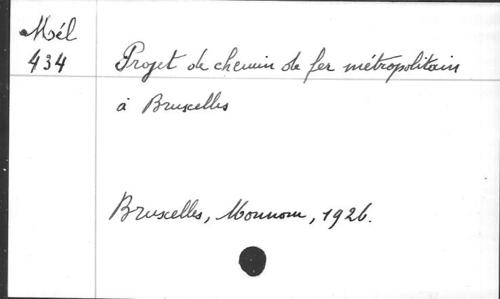 Mél
434
Projet de chemin de fer métropolitain
à Bruxelles
Bruxelles, Monnom, 1926.